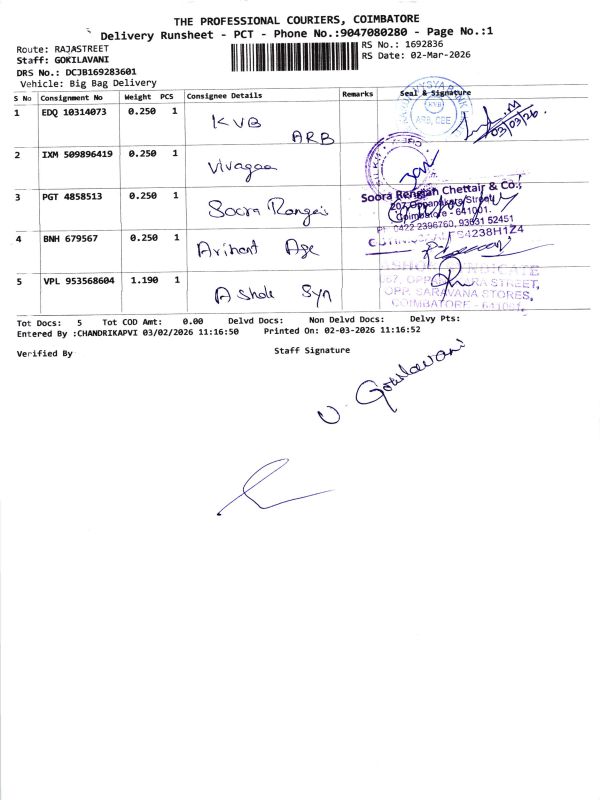 THE PROFESSIONAL COURIERS, COIMBATORE
Delivery Runsheet - PCT - Phone No.:9047080280 - Page No.:1
Route: RAJASTREET
RS No.: 1692836
Staff: GOKILAVANI
RS Date: 02-Mar-2026
DRS No.: DCJB169283601
Vehicle: Big Bag Delivery
S No Consignment No Weight PCS Consignee Details Remarks Seal & Signature
1 EDQ 10314073 0.250 1 KVB ARB
KVB
ARB, CBE
03/03/26
2 IXM 509896419 0.250 1
3 PGT 4858513 0.250 1 Soora Ranges
Soora Rengiah Chettair & Co.,
207, Oppanakara Street,
Coimbatore - 641001.
Ph: 0422 2396760, 93631 52451
4 BNH 679567 0.250 1 Arihant Age
5 VPL 953568604 1.190 1 Ashok Syn
ASHOK SYNDICATE
OPP. SARAVANA STORES,
COIMBATORE - 641001.
Tot Docs: 5 Tot COD Amt: 0.00 Delvd Docs: Non Delvd Docs: Delvy Pts:
Entered By :CHANDRIKAPVI 03/02/2026 11:16:50 Printed On: 02-03-2026 11:16:52
Verified By Staff Signature
V. Gokilavani